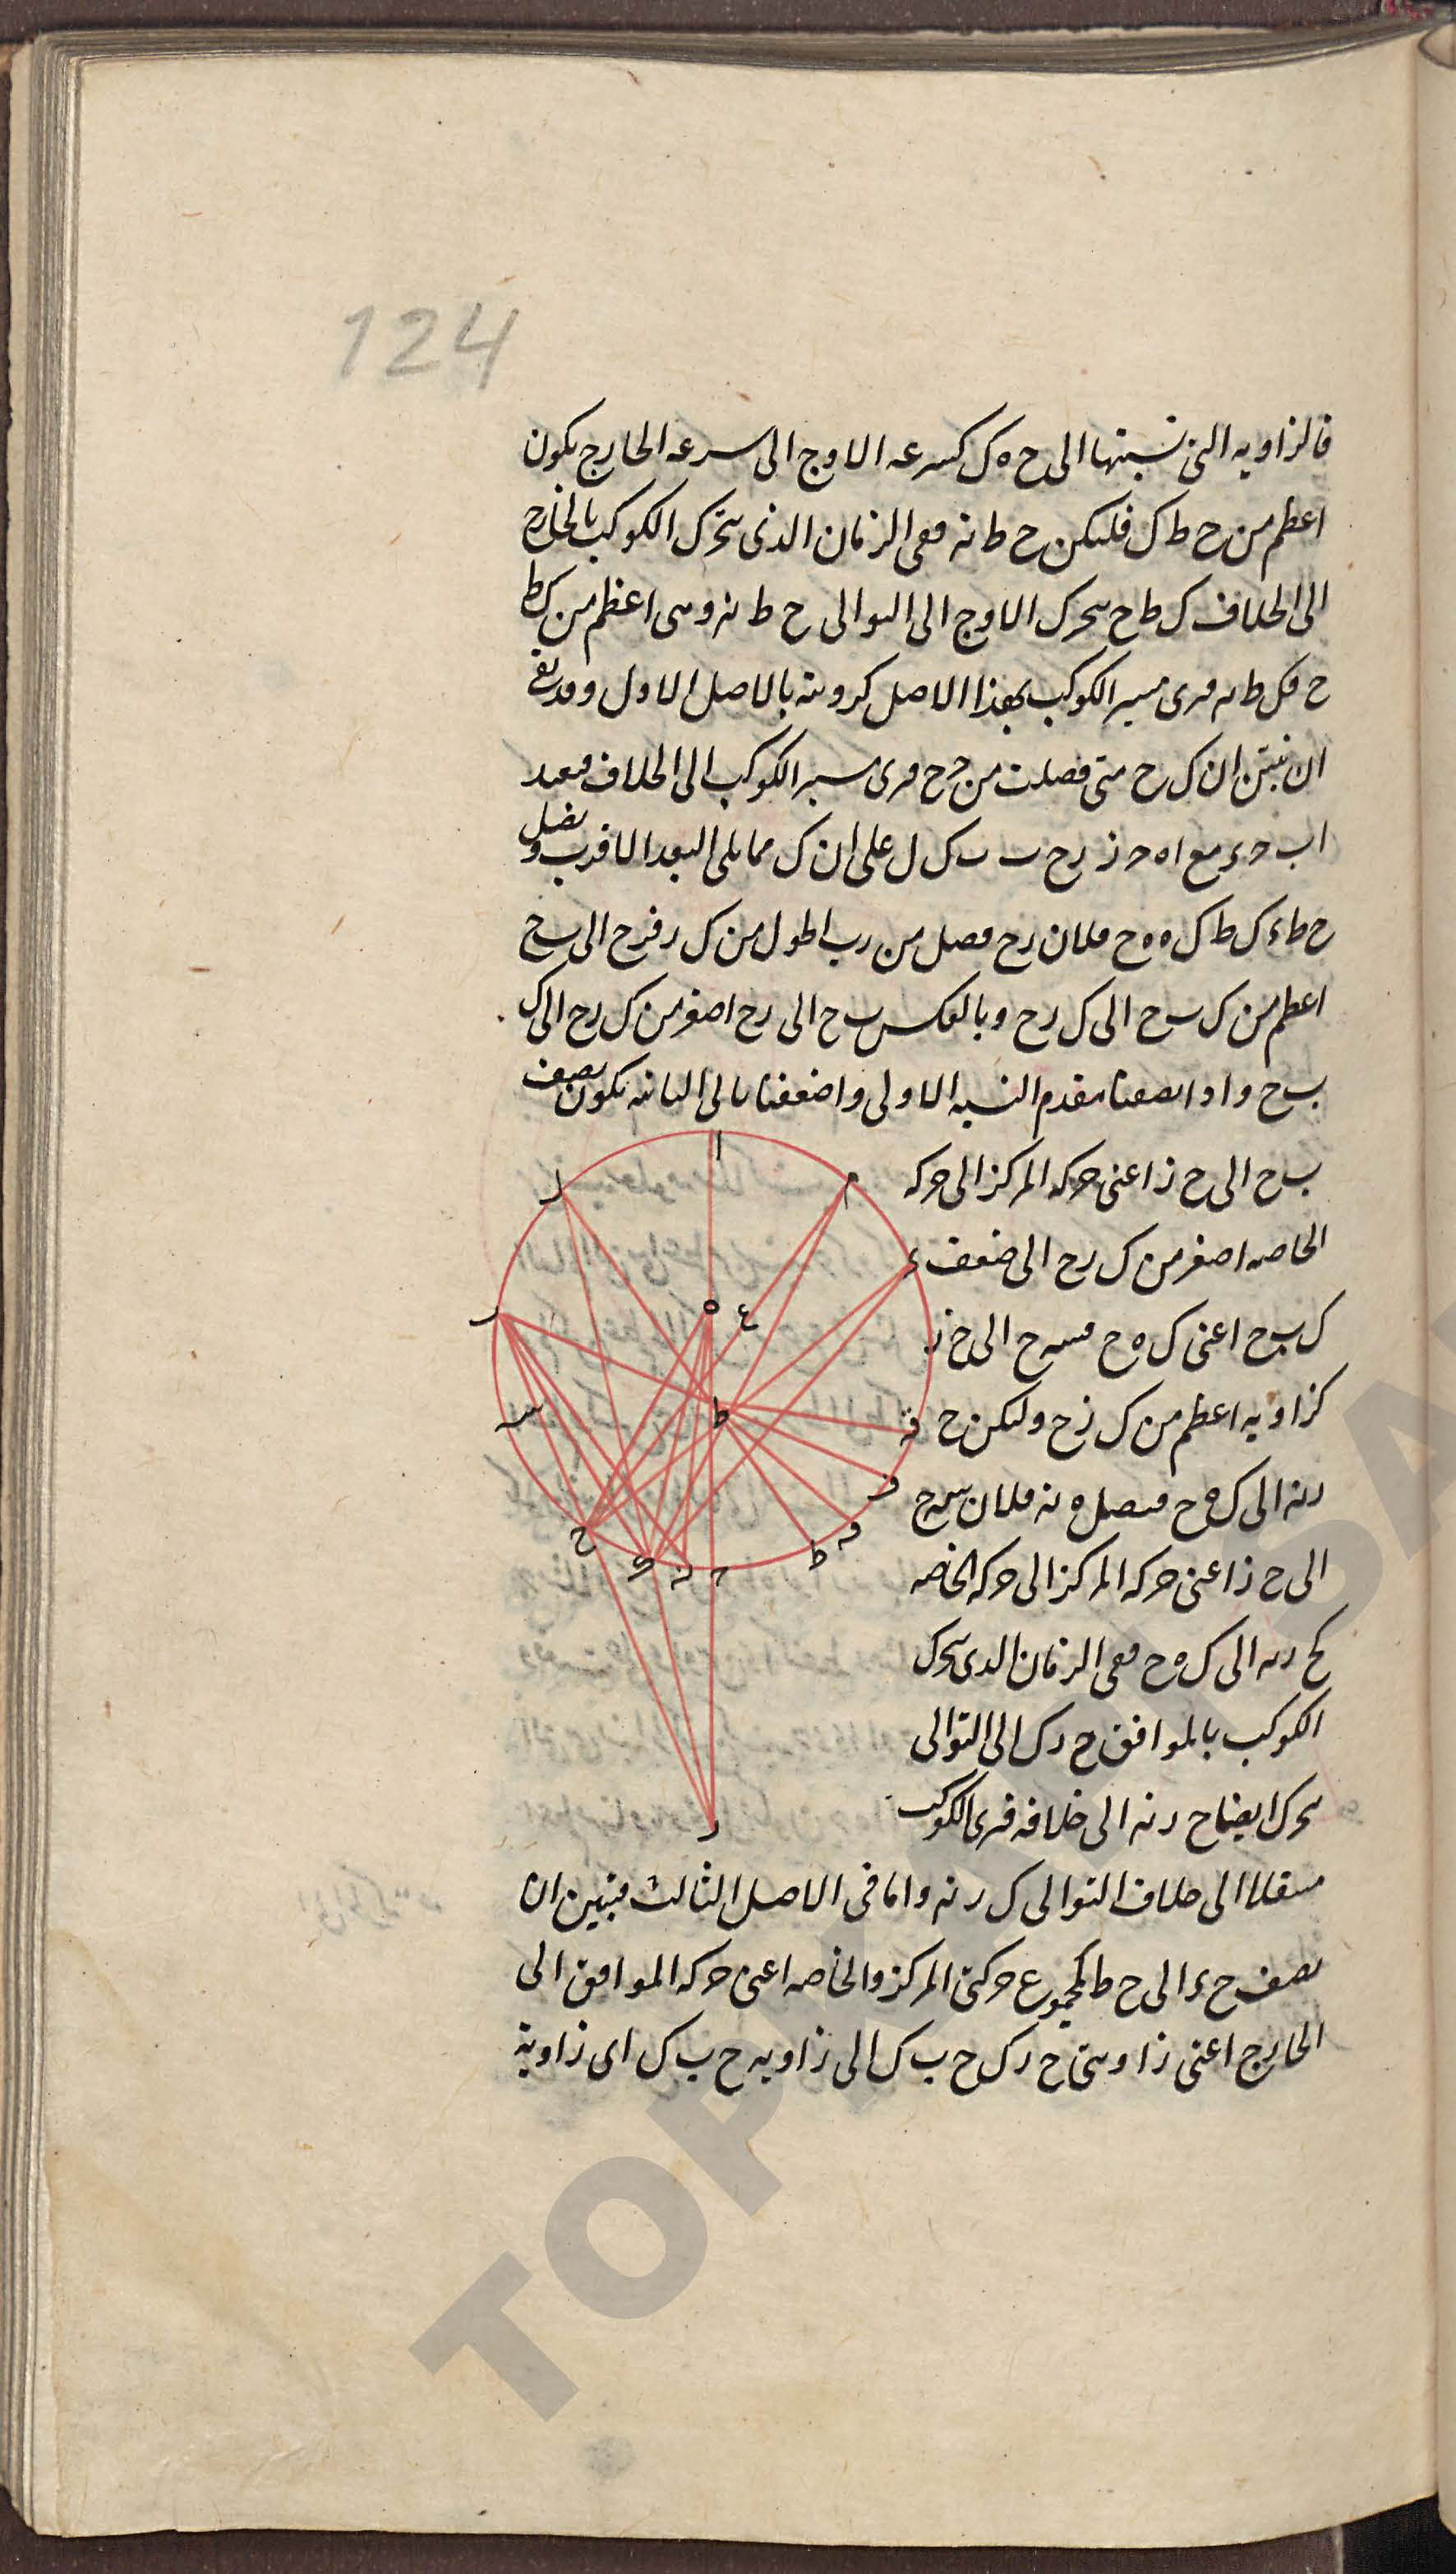 124
فالزاويه التى نسبتها الى ح ه ك كسرعه الاوج الى سرعه الخارج يكون
اعظم من ح ط ك فليكن ح ط نه ففى الزمان الذى يتحرك الكوكب بالخارج
الى الخلاف ك ط ح يتحرك الاوج الى التوالى ح ط نه وهى اعظم من ك ط
ح فكل ط نه فيرى مسير الكوكب بهذا الاصل كرويته بالاصل الاول وقد بقى
ان نبين ان ك ر ح متى فصلت من ح ر ح فيرى سير الكوكب الى الخلاف فنعيد
اب ح د مع ا ه ح ز ر ح ب ب ك ل على ان ك مما يلى البعد الاقرب ونصل
ح ط د ك ط ك ه ه ح فلان ر ح فصل من ر ب اطول من ك ر فر ح الى ب ح
اعظم من ك ب ح الى ك ر ح وبالعكس ب ح الى ر ح اصغر من ك ر ح الى ك
ب ح واذا نصفنا مقدم النسبه الاولى واضعفنا تالى الثانيه يكون نصف
ب ح الى ح ز اعنى حركه المركز الى حركه
الخاصه اصغر من ك ر ح الى ضعف
ك ب ح اعنى ك ه ح فنسبه ح الى ح ز
كزاويه اعظم من ك ز ح وليكن ح
ر نه الى ك ه ح فنصل ه نه فلان س ح
الى ح ز اعنى حركه المركز الى حركه الخاصه
كح ر نه الى ك ه ح ففى الزمان الذى يتحرك
الكوكب بالموافق ح ر ك الى التوالى
يتحرك ايضا ح ر نه الى خلافه فيرى الكوكب
منتقلا الى خلاف التوالى ك ر نه واما فى الاصل الثالث فنبين ان
نصف ح د الى ح ط كمجموع حركتى المركز والخاصه اعنى حركه الموافق الى
الخارج اعنى زاويتى ح ر ك ح ب ك الى زاويه ح ب ك اى زاوية
ا
م
ر
ء
ه
ع
ر
ط
س
ق
ف
ح
ك
نه
ح
ط
ر
TOPKAPI SA